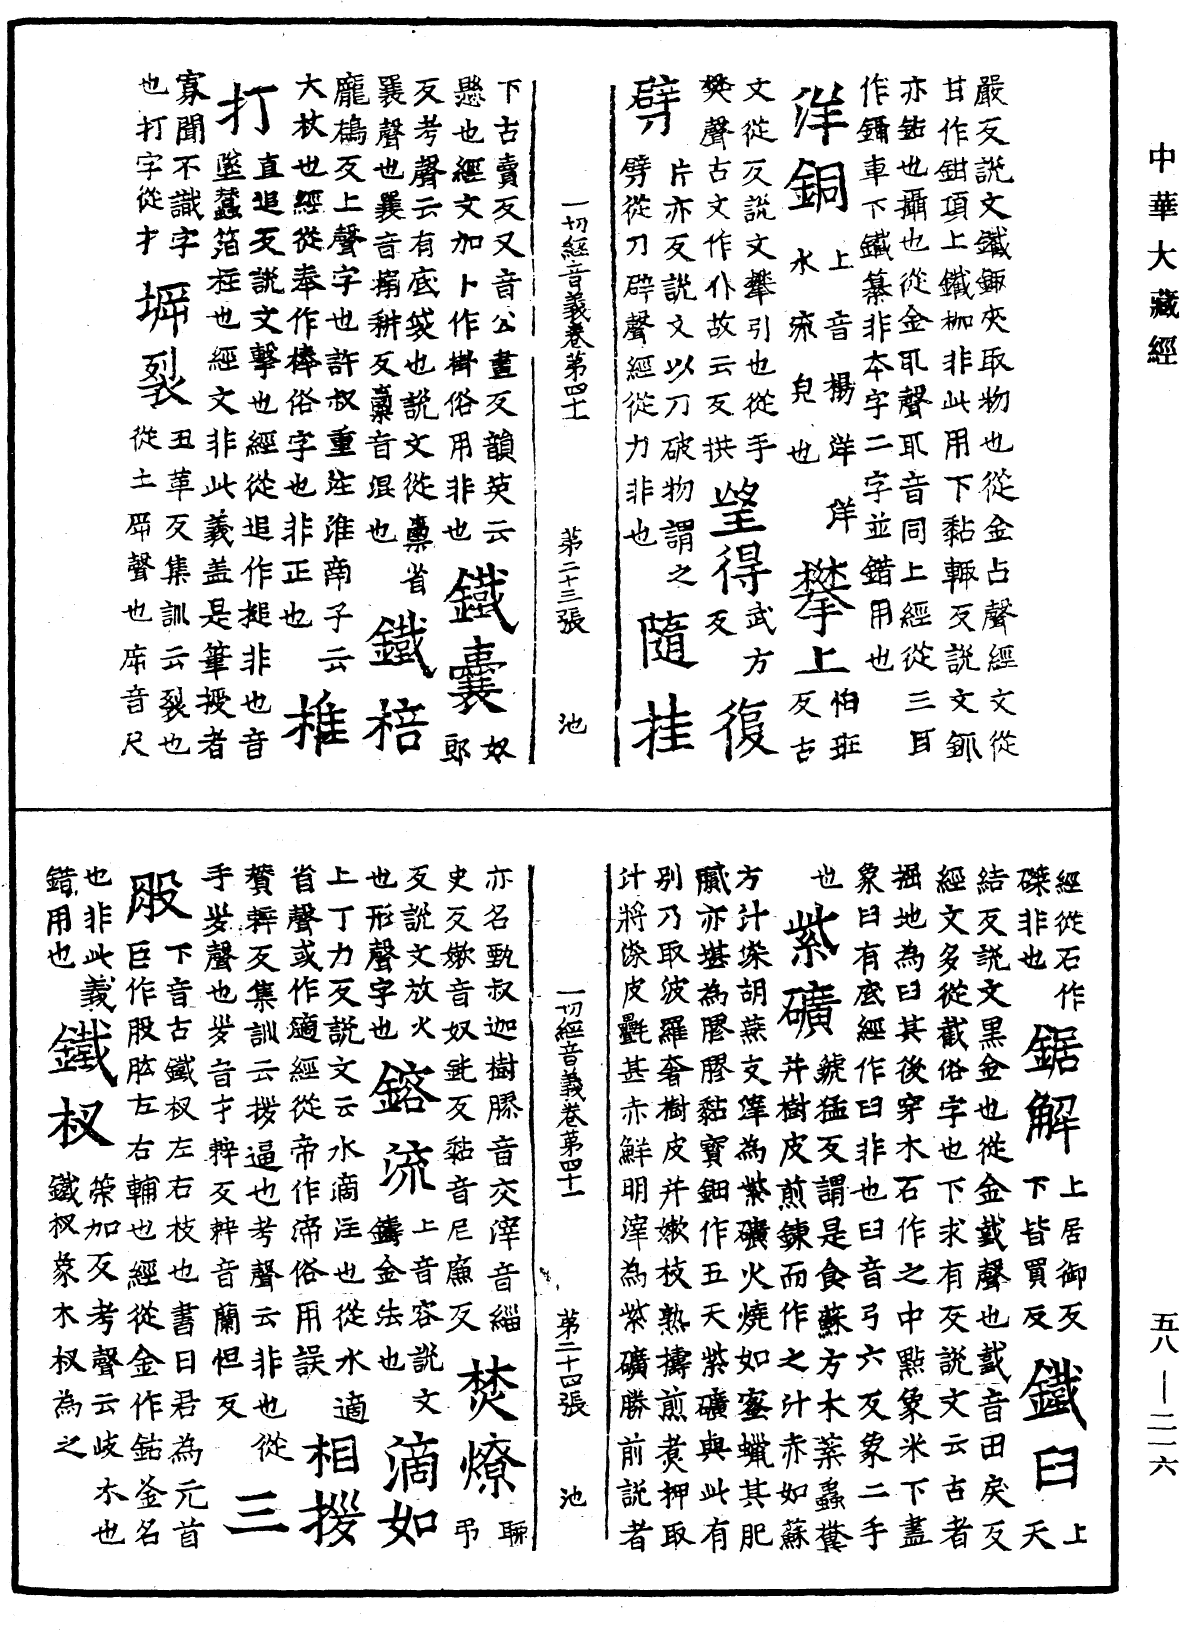 中華大藏經
嚴反說文鐵鉔夾取物也從金占聲經文從
甘作鉗項上鐵枷非此用下黏輒反說文鈲
亦鉆也攝也從金耴聲耴音同上經從三耳
作鑷車下鐵纂非本字二字並錯用也
洋銅 上音楊洋洋水流皃也 攀上 怕班反古
文從反說文攀引也從手
樊聲古文作𠬜故云反拱 望得 武方反 復
劈 片亦反說文以刀破物謂之
劈從刀辟聲經從力非也 隨挂
一切經音義卷第四十一 第二十三張 池
下古賣反又音公畫反韻英云
懸也經文加卜作掛俗用非也 鐵囊 奴郎
反考聲云有底袋也說文從㯻省
襄聲也襄音搦耕反㯻音混也 鐵棓
龐鵅反上聲字也許叔重注淮南子云
大杖也經從奉作棒俗字也非正也 椎
打 直追反說文擊也經從追作搥非也音
墜蠶箔柱也經文非此義盖是筆授者
寡聞不識字
也打字從扌 㙤裂 丑革反集訓云裂也
從土㡿聲也㡿音尺
經從石作
磔非也 鋸解 上居御反下皆買反 鐵臼 上天
結反說文黑金也從金𢧜聲也𢧜音田戾反
經文多從截俗字也下求有反說文云古者
掘地為臼其後穿木石作之中點象米下盡
象臼有底經作臼非也臼音弓六反象二手
也 紫礦 虢猛反謂是食蘇方木蘂蟲糞
并樹皮煎鍊而作之汁赤如蘇
方汁染胡燕支滓為紫礦火燒如蜜蠟其肥
膩亦堪為膠膠黏寶鈿作五天紫礦與此有
別乃取波羅奢樹皮并嫩枝熟擣煎煑押取
汁將染皮㲲甚赤鮮明滓為紫礦勝前說者
一切經音義卷第四十一 第二十四張 池
亦名甄叔迦樹膠音交滓音緇
史反嫩音奴鈍反黏音尼廉反 焚燎 聊弔
反說文放火
也形聲字也 鎔流 上音容說文鑄金法也 滴如
上丁力反說文云水滴注也從水適
省聲或作適經從帝作渧俗用誤 相拶
賛辢反集訓云拶逼也考聲云非也從
手㛿聲也㛿音才辢反辢音蘭怛反 三
股 下音古鐵杈左右枝也書曰君為元首
臣作股肱左右輔也經從金作鈷釜名
也非此義
錯用也 鐵杈 策加反考聲云歧木也
鐵杈象木杈為之
五八—二一六